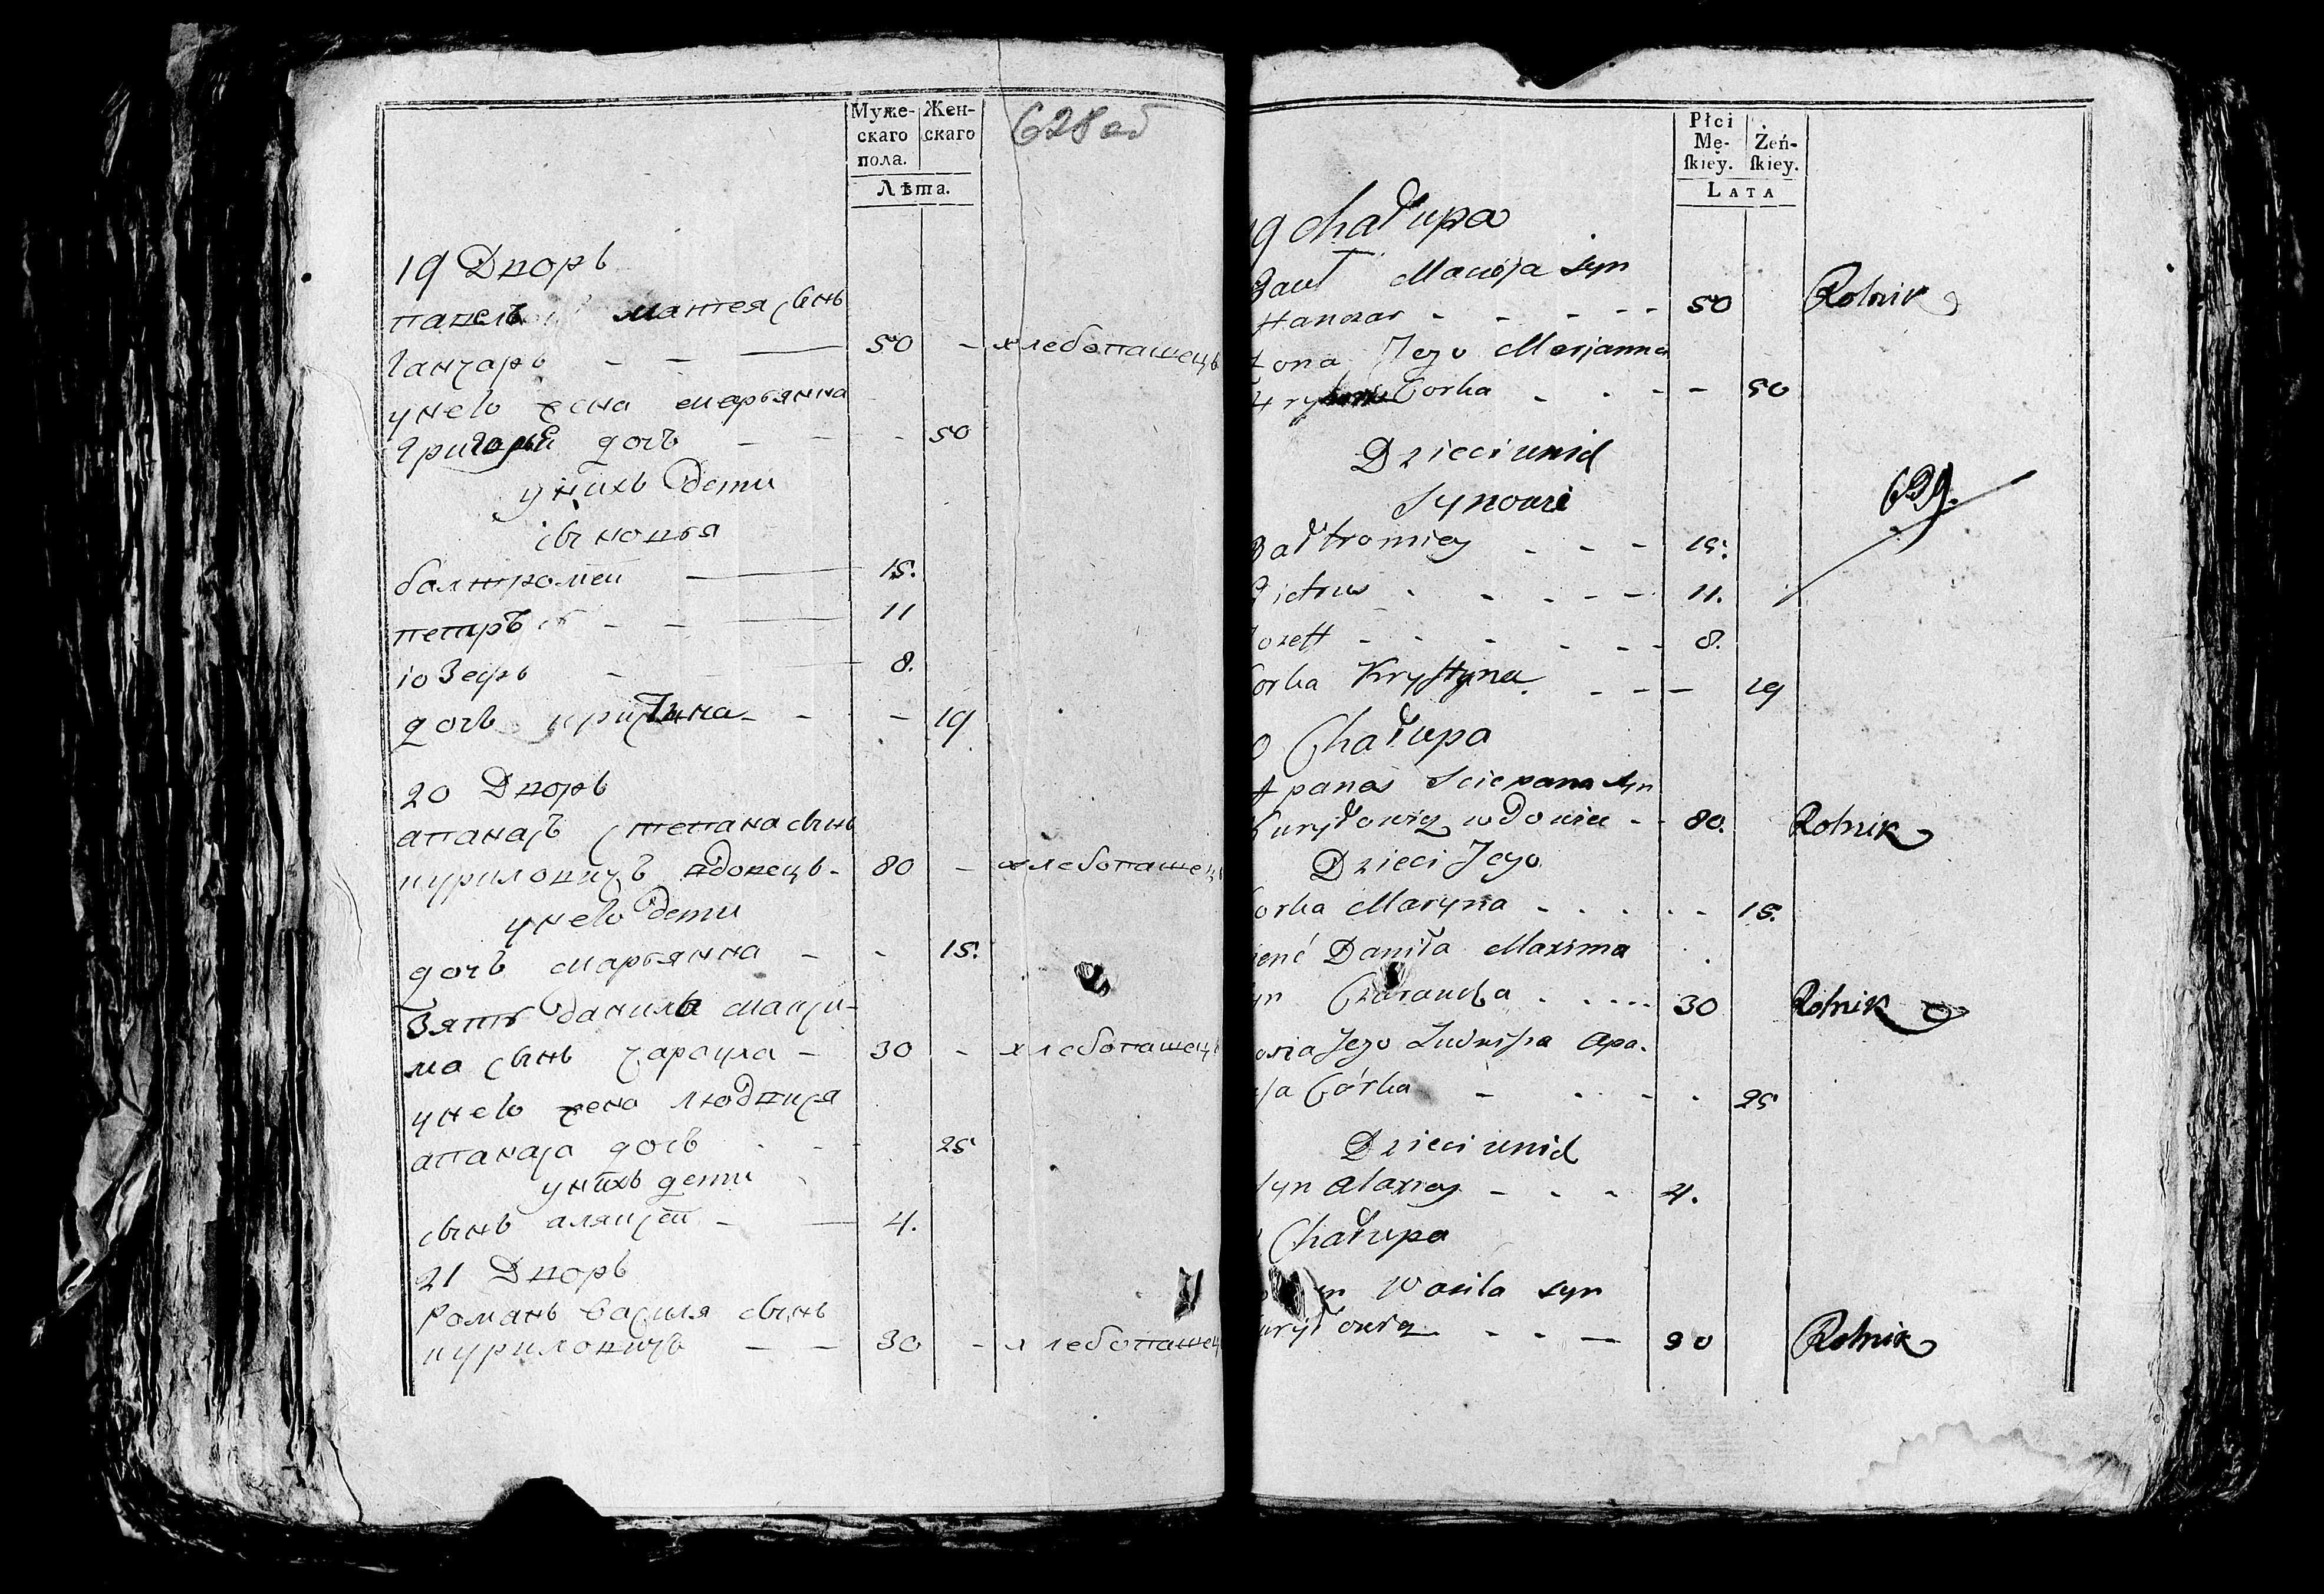 Муже-
скаго
пола.
Жен-
скаго
Лѣта.
628 об
19 Дворъ
павелъ матея сынъ
ганчаръ - - — 50 - хлебопашецъ
унего жена марьянна
григорыи дочь - - - 50
унихъ дети
сыновья
балтромей — 15.
петръ - - — 11
іозефъ - — 8.
дочь кристина - - - 19
20 Дворъ
апанасъ степана сынъ
куриловичъ вдовецъ - 80 - хлебопашецъ
унего дети
дочь марьянна - - 15.
Зять данила макси-
ма сынъ - 30 - хлебопашецъ
унего жена людвися
апанаса дочь - - 25
унихъ дети
сынъ аляксей - — 4.
21 Дворъ
романъ василя сынъ
куриловичъ — — 30 - хлебопашец
Płci
Mę-
ſkiey.
Żeń-
ſkiey.
LATA
9 Chałupa
Macieja syn
Hanczar - - - - - 50 Rolnik
Żona Jego Marjanna
Corka - - - - 50
Dzieci unich
Synowie
639.
Bałtromiey - - - 15.
Pietrus - - - - - 11.
Jozeff - - - - - - 8.
Corka Krystyna - - - 19
0 Chałupa
Apanas Sciepana syn
Kuryłowicz wdowiec - - 80. Rolnik
Dzieci Jego
Corka Maryna - - - - - 15.
Daniła Maxima
- - - - 30 Rolnik
Jego Ludwisia Apa-
Córka - - - - 25
Dzieci unich
Syn Alaxiey - - - 4.
Chałupa
Wasila syn
uryłowicz - - — 30 Rolnik